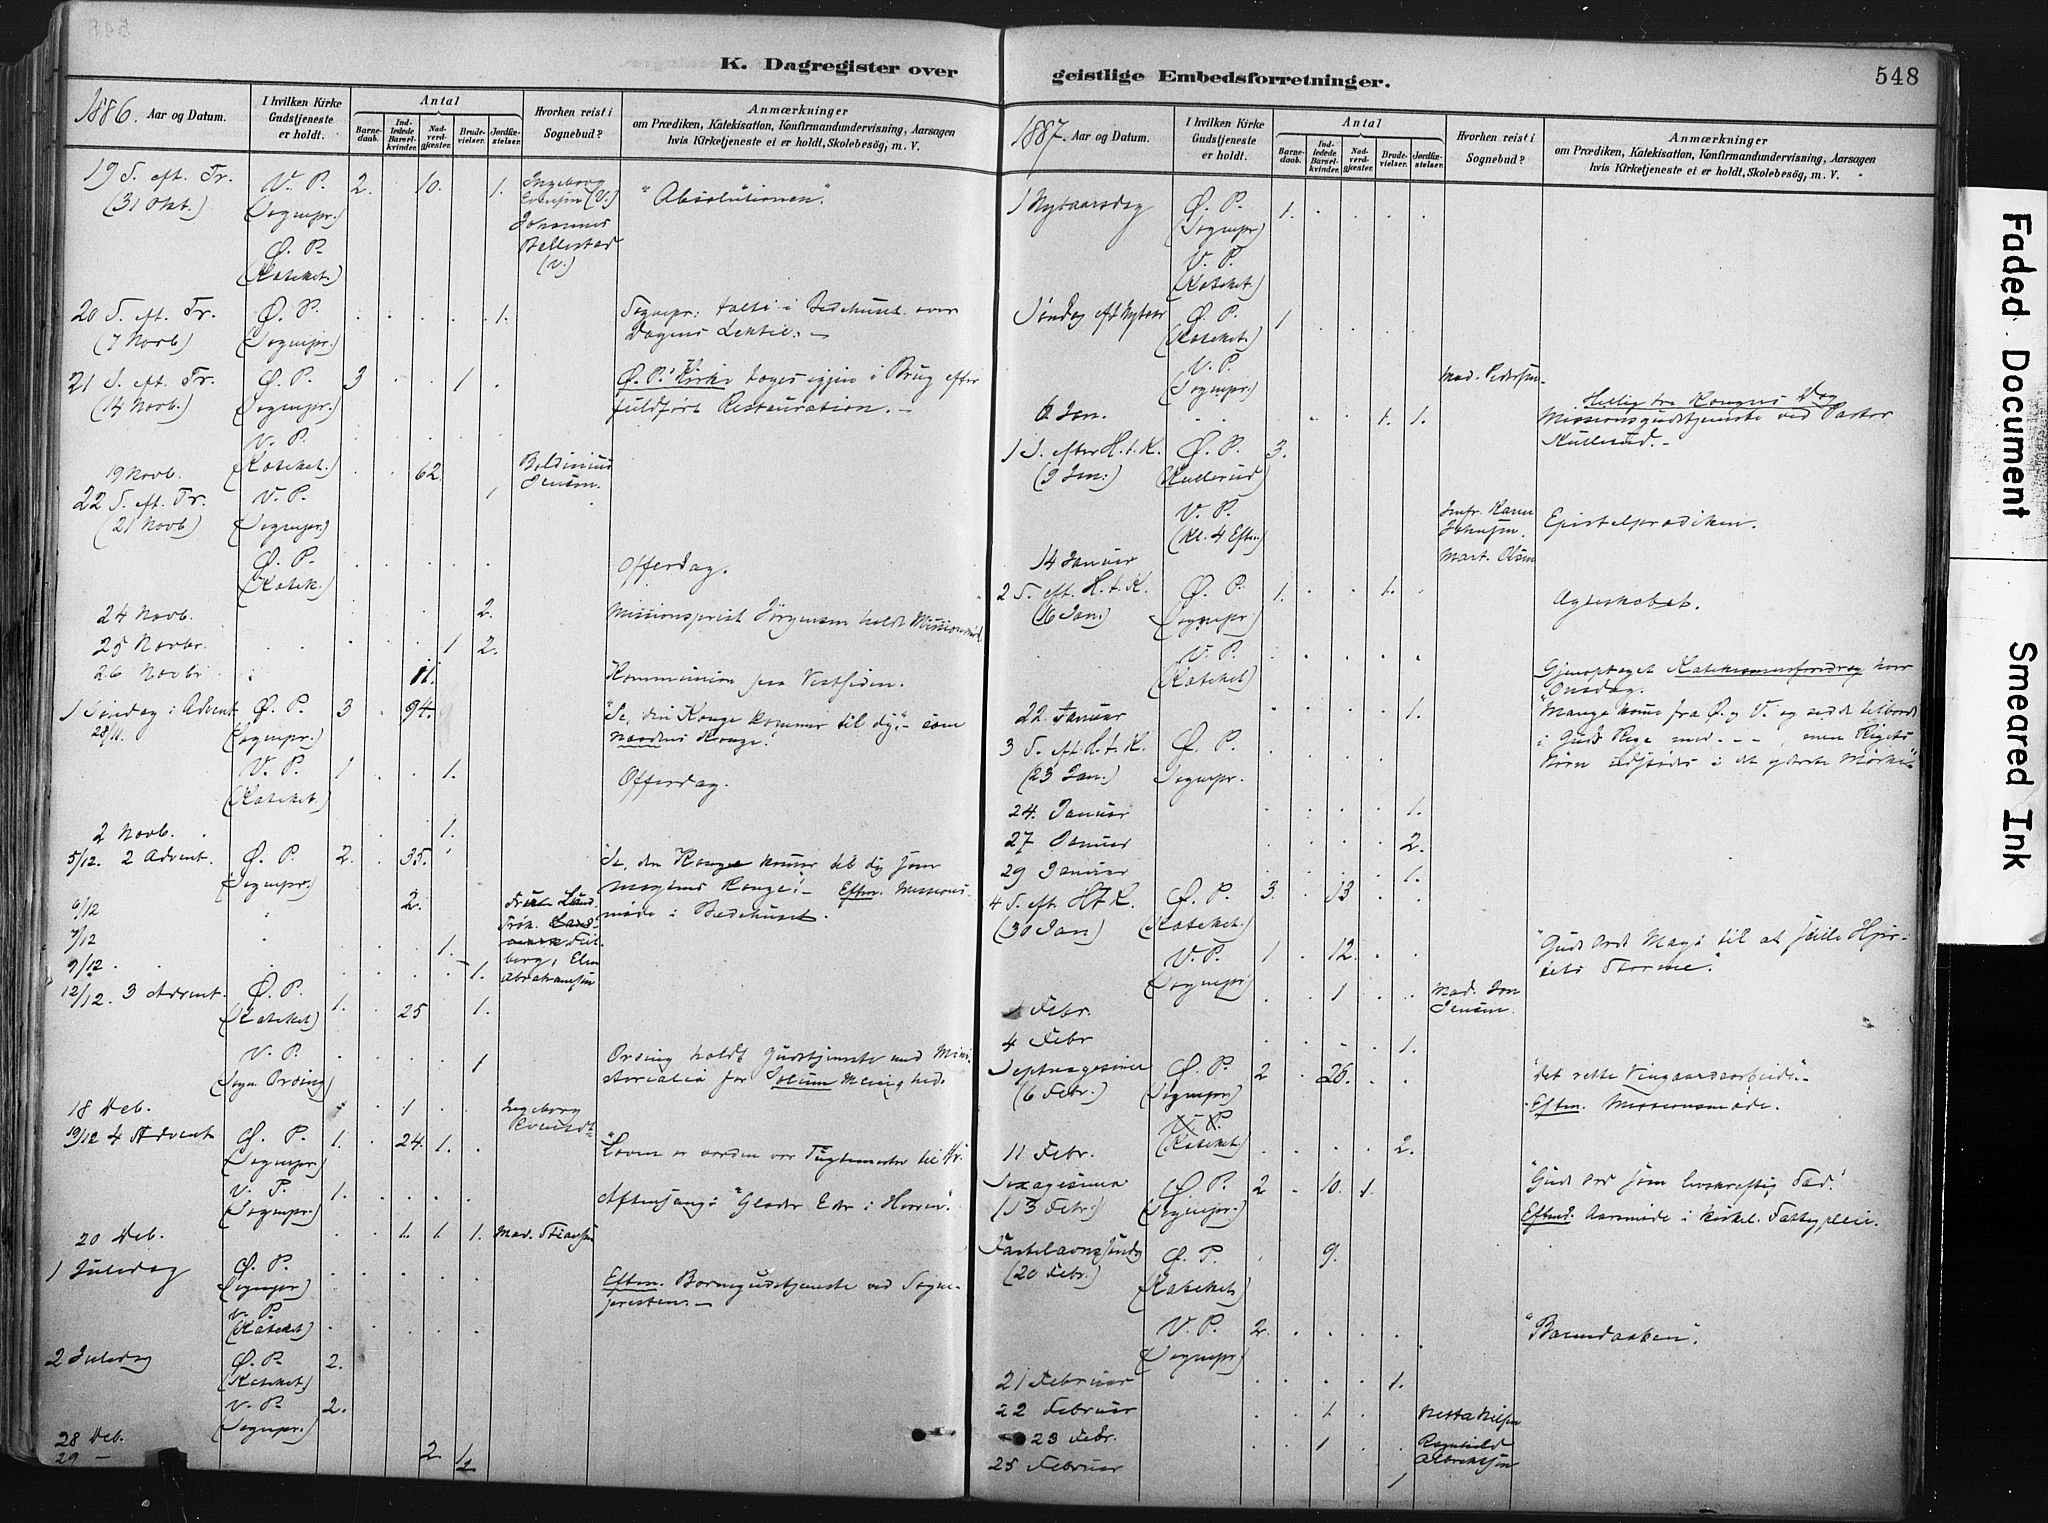 K. Dagregister over
1886. Aar og Datum.
I hvilken Kirke Gudstjeneste er holdt.
Antal
Barnedaab.
Indledede Barselkvinder.
Nadverdgjester.
Brudevielser.
Jordfæstelser.
Hvorhen reist i Sognebud?
Anmærkninger
om Prædiken, Katekisation, Konfirmandundervisning, Aarsagen
hvis Kirketjeneste ei er holdt, Skolebesög, m. V.
19 S. eft. Tr. V. P. 2. 10. 1. Ingeborg
(31 Okt.) (Sognepr.) (V.) "Absolutionen".
Ø. P. Johannes
(Kateket.) Ballestad (V.)
20 S. eft. Tr. Ø. P. 1. Sognepr: talte i Bedehuset over
(7 Novb) (Sognepr.) Dagens Lektie. –
21 S. eft. Tr. Ø. P. 3 1 Ø. P.' Kirke toges igjen i Brug efter
(14 Novb.) (Sognepr.) fuldført Restauration. –
V. P.
(Kateket.)
19 Novb. 62. Boldinius Jensen.
22 S. eft. Tr. V. P. 1
(21 Novb) (Sognepr.)
Ø. P. Offerdag.
(Katek.)
24 Novb. 2. Missionsprest Jörgensen holdt
25 Novbr. 1 2.
26 Novbr. 11. Kommunion paa Vestsiden.
1 Söndag i Advent Ø. P. 3 94. "Se, din Konge kommer til dig" – som
28/11. (Sognepr.) Naadens Konge.
V. P. 1 1. Offerdag.
(Kateket)
2 Novb. 1.
5/12. 2 Advent. Ø. P. 2. 35. "Se, din Konge kommer til dig som
(Sognepr.) Magtens Konge! – Eftm. Missions-
6/12 2. møde i Bedehuset.
7/12 1.
9/12. 1. Abrahamsen
12/12. 3 Advent. Ø. P. 1. 25 1.
(Kateket)
V. P. 1 Orsing holdt Gudstjeneste med Mini-
(Sogn. Orsing) sterialia for Solum Menighed.
18 Deb. 1 Ingeborg
19/12 4 Advent Ø. P. 1. 24. 1. "Loven er vorden vor Tugtemester til Kr.
(Sognepr.)
V. P. 1. Aftensang: "Glæder Eder i Herren".
(Sognepr.)
20 Deb. 1. 1. 1. Mad.
1 Juledag Ø. P.
(Sognepr) Eftm. Børnegudstjeneste ved Sogne-
V. P. presten. –
(Kateket)
2 Juledag Ø. P. 2.
(Kateket)
V. P. 2.
(Sognepr.)
28 Deb. 2. 1
29 – 2
geistlige Embedsforretninger.
548
1887. Aar og Datum.
I hvilken Kirke Gudstjeneste er holdt.
Antal
Barnedaab.
Indledede Barselkvinder.
Nadverdgjester.
Brudevielser.
Jordfæstelser.
Hvorhen reist i Sognebud?
Anmærkninger
om Prædiken, Katekisation, Konfirmandundervisning, Aarsagen
hvis Kirketjeneste ei er holdt, Skolebesög, m. V.
1 Nytaarsdag Ø. P. 1.
(Sognepr)
V. P.
(Kateket)
Söndag eft Nytaar Ø. P. 1
(Kateket.)
V. P. Mad. Pedersen
(Sognepr.) Hellig tre Kongers Dag
6 Jan. 1. 1. Missionsgudstjeneste ved Pastor
1 S. efter H. t. K. Ø. P. 3. Kullerud. –
(9 Jan:) (Kullerud)
V. P. Jmfr. Karen Johnsen. Epistelprædiken.
(Kl. 4 Eftm.)
14 Januar Mart. Olsen
2 S. eft. H. t. K. Ø. P. 1. 1. Agteskabet.
(16 Jan.) (Sognepr)
V. P. Gjenoptaget Katekismusforedrag hver
(Kateket) Onsdag.
22. Januar 1. "Mange komme fra Ø. og V. og sidde tilbords
3 S. eft. H. t. K. Ø. P. i Guds Rige med - - -, men Rigets
(23 Jan.) Sognepr. Børn udstødes i det yderste Mørke"
24. Januar 1.
27 Januar 2.
29 Januar 1.
4 S. eft H t K. Ø. P. 3. 13
(30 Jan) (Kateket.)
V. P. 1 12. "Guds Ord Magt til at stille Hjer-
(Sognepr) tets Storme".
1 Febr. 1 Mad. Jon Jensen.
4 Febr 1.
Septuagesima Ø. P. 2 26. "Det rette Vingaardsarbeide". –
(6 Febr.) (Sognepr) Eftm. Missionsmøde.
V. P.
(Kateket)
11 Febr. 2.
Sexagesima Ø. P. 2 10. 1. "Guds ord som livskraftig Sæd!
(13 Febr.) (Sognepr.) Eftmd. Aarsmøde i kirkel. Fattigpleie.
Fastelavnssöndag Ø. P. 9.
(20 Febr.) (Kateket)
V. P. 2. "Barnedaaben".
(Sognepr.)
21 Februar 1.
22 Februar 1 Netta Nilsen
23 Febr. 1 Ragnhild Albrektsen
25 Februar 1
Faded Document
Smeared Ink